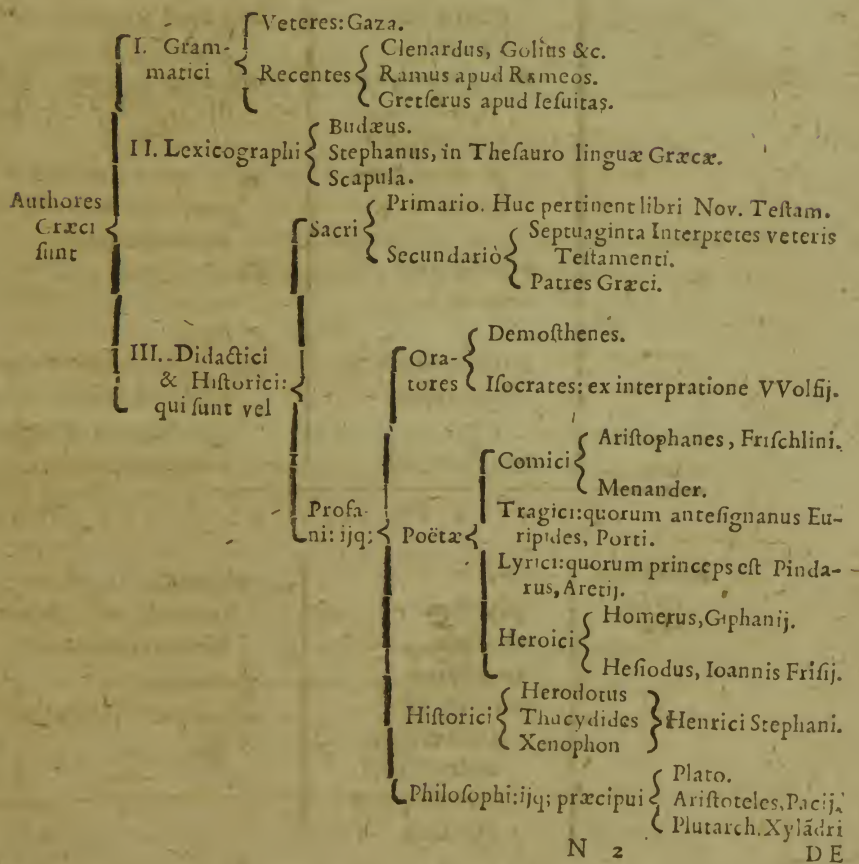 Authores Græci sunt
I. Grammatici
Veteres: Gaza.
Recentes
Clenardus, Golius &c.
Ramus apud Rameos.
Gretſerus apud Ieſuitas.
II. Lexicographi
Budæus.
Stephanus, in Theſauro linguæ Græcæ.
Scapula.
III. Didactici
& Hiſtorici:
qui ſunt vel
Sacri
Primario. Huc pertinent libri Nov. Teſtam.
Secundariò
Septuaginta Interpretes veteris
Teſtamenti.
Patres Græci.
Profa-
ni: ijq;
Ora-
tores
Demoſthenes.
Iſocrates: ex interpratione VVolfij.
Poëtæ
Comici
Ariſtophanes, Friſchlini.
Menander.
Tragici: quorum anteſignanus Eu-
ripides, Porti.
Lyrici: quorum princeps eſt Pinda-
rus, Aretij.
Heroici
Homerus, Giphanij.
Heſiodus, Ioannis Friſij.
Hiſtorici
Herodotus
Thucydides
Xenophon
Henrici Stephani.
Philoſophi: ijq; præcipui
Plato.
Ariſtoteles, Pacij.
Plutarch. Xylãdri
N 2 DE